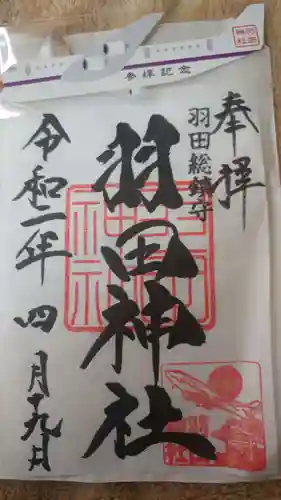 参拝記念
奉拝
羽田総鎮守
羽田神社
令和二年四月十九日